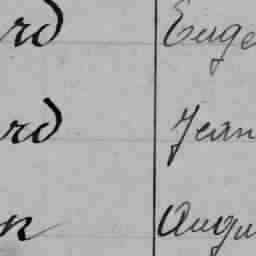 rd Euge
rd Jean
n Augu